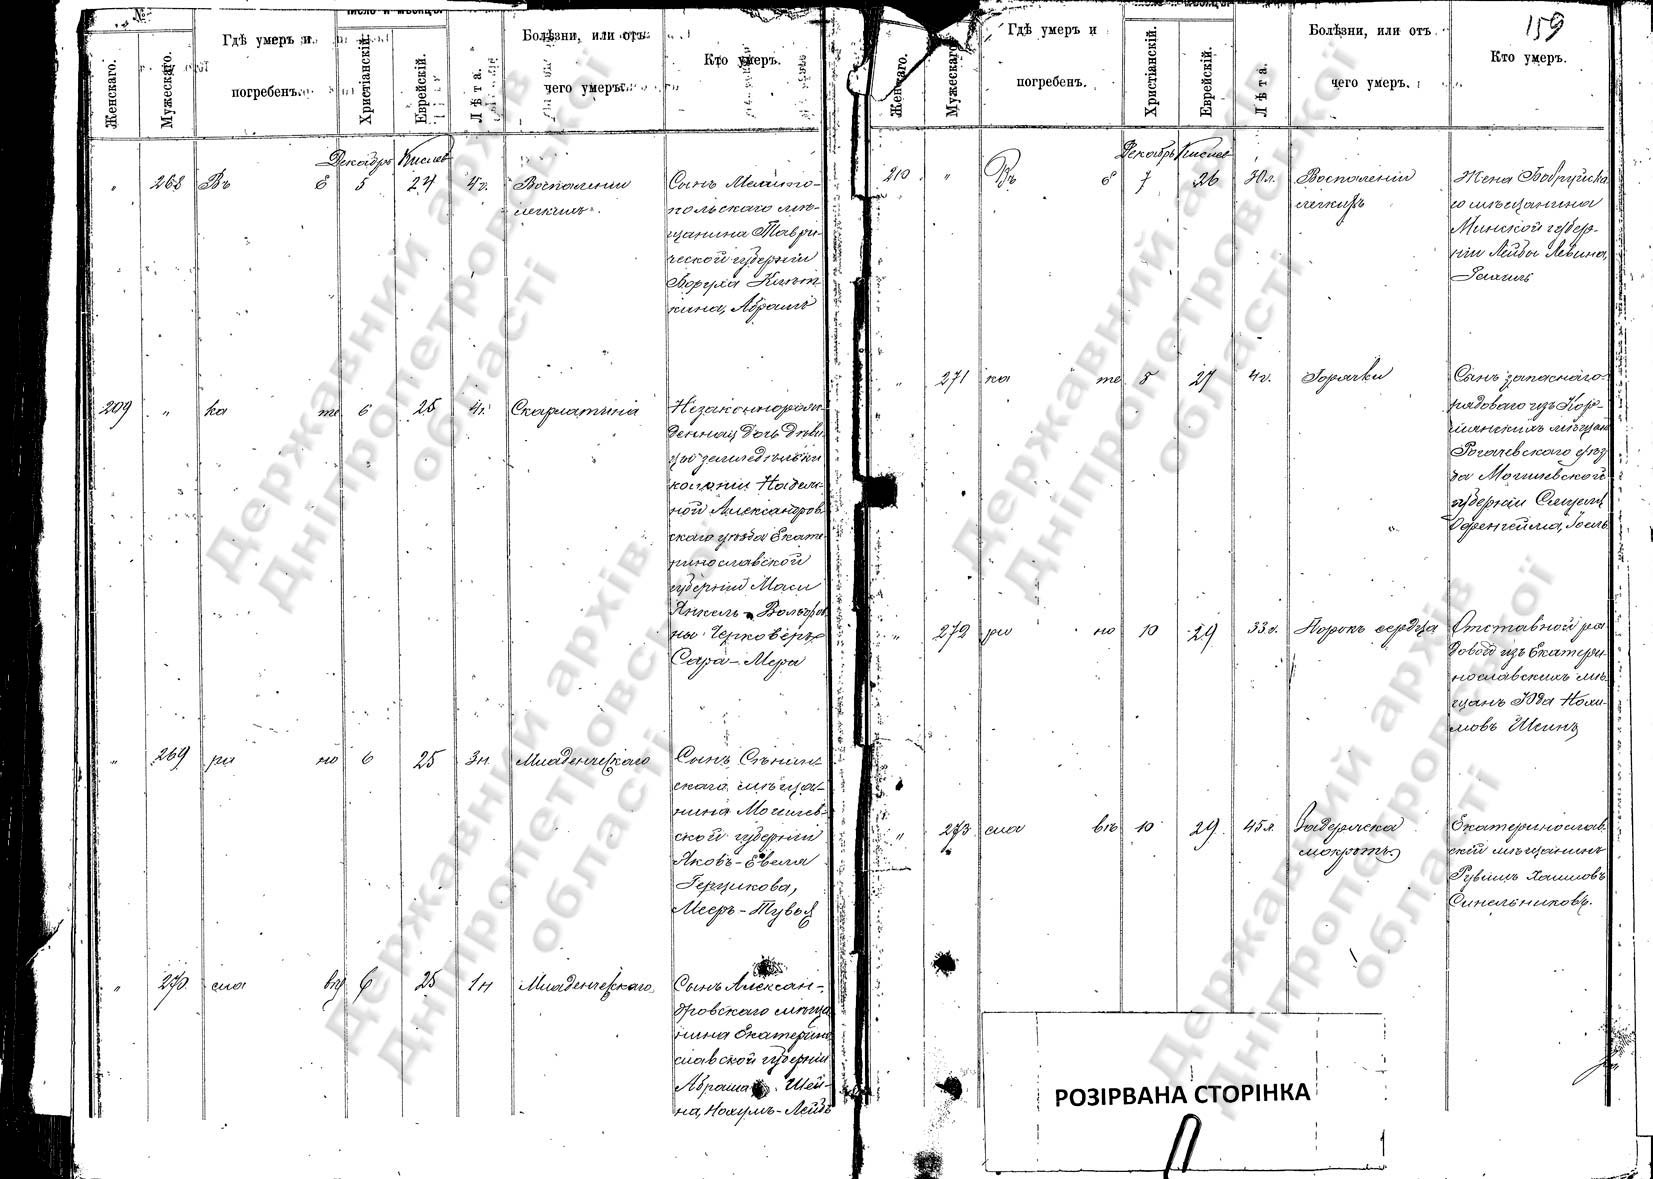 №
Число и мѣсяцъ
Женскаго.
Мужескаго.
Гдѣ умеръ и
погребенъ.
Христіанскій.
Еврейскій.
Лѣта.
Болѣзни, или отъ
чего умеръ.
Кто умеръ.
Декабрь Кислев
" 268 Въ Е 5 24 4 г. Воспаленіи
легкихъ.
Сынъ Мелито-
польскаго мѣ-
щанина Таври-
ческой губерніи
Абрамъ
209 " ка те 6 25 4 г. Скарлатина
Незаконнорож-
денная дочь дѣви-
цы земледѣлки
колоніи Надеж-
ной Александров-
скаго уѣзда Екате-
ринославской
губерніи Маси
Янкель-
ны
Сара-Мера
" 269 ри но 6 25 3 н Младенческаго
Сынъ Сѣнин-
скаго мѣща-
нина Могилев-
ской губерніи
Яковъ-Евеля
Герцикова,
Мееръ-Тувья
" 270 сла вѣ 6 25 1 н Младенческаго
Сынъ Алексан-
дровскаго мѣща
нина Екатерино
славской губерніи
Абрама Шей-
на, Нохумъ-Лейбъ
159
Женскаго.
Мужескаго
Гдѣ умеръ и
погребенъ.
Христіанскій.
Еврейскій.
Лѣта.
Болѣзни, или отъ
чего умеръ.
Кто умеръ.
Декабрь Кислев
210 " Въ Е 7 26 30 л. Воспаленіи
легкихъ
Жена Бобруйска
го мѣщанина
Минской губер-
ніи Лейбы Левина,
" 271 ка те 8 27 4 г. Горячки
Сынъ запаснаго
рядоваго изъ Кор-
мянскихъ мѣщан
Рогачевскаго уѣз
да Могилевской
губерніи
" 272 ри но 10 29 33 л. Порокъ сердца
Отставной ря
довой изъ Екатери-
нославскихъ мѣ
щанъ Юда Нохи-
мовъ Шеинъ
" 273 сла вѣ 10 29 45 л. Задержка
мокроты
Екатеринослав-
скій мѣщанинъ
Рувимъ Хаимовъ
Синельниковъ.
РОЗІРВАНА СТОРІНКА
Державний архів
Дніпропетровської
області
Державний архів
Дніпропетровської
області
Державний архів
Дніпропетровської
області
Державний архів
Дніпропетровської
області